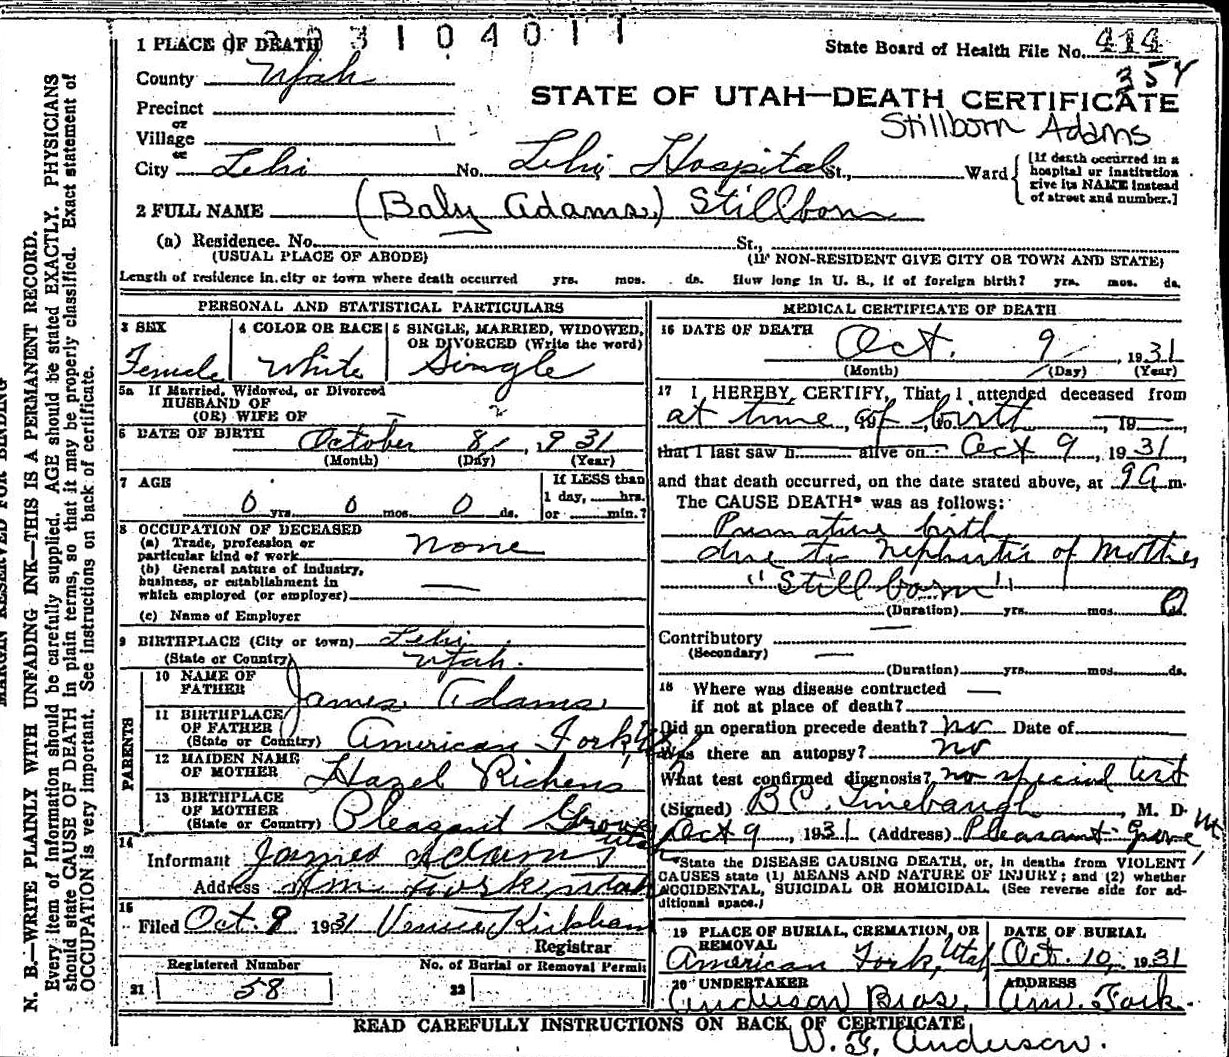 1 PLACE OF DEATH 3104011
State Board of Health File No. 414
County Utah
354
STATE OF UTAH—DEATH CERTIFICATE
Precinct
or
Village
Stillborn Adams
or
City Lehi No. Lehi Hospital St., Ward [If death occurred in a hospital or institution give its NAME instead of street and number.]
2 FULL NAME (Baby Adams) Stillborn
(a) Residence. No. St.,
(USUAL PLACE OF ABODE) (IF NON-RESIDENT GIVE CITY OR TOWN AND STATE)
Length of residence in city or town where death occurred yrs. mos. ds. How long in U. S., if of foreign birth? yrs. mos. ds.
PERSONAL AND STATISTICAL PARTICULARS
3 SEX 4 COLOR OR RACE 5 SINGLE, MARRIED, WIDOWED,
OR DIVORCED (Write the word)
Female White Single
5a If Married, Widowed, or Divorced
HUSBAND OF
(OR) WIFE OF
6 DATE OF BIRTH October 8, 1931
(Month) (Day) (Year)
7 AGE If LESS than
1 day, hrs.
0 yrs. 0 mos. 0 ds. or min.?
8 OCCUPATION OF DECEASED
(a) Trade, profession or
particular kind of work none
(b) General nature of industry,
business, or establishment in
which employed (or employer) —
(c) Name of Employer
9 BIRTHPLACE (City or town) Lehi
(State or Country) Utah.
PARENTS
10 NAME OF
FATHER James Adams
11 BIRTHPLACE
OF FATHER
(State or Country) American Fork, Utah
12 MAIDEN NAME
OF MOTHER Hazel Richens
13 BIRTHPLACE
OF MOTHER
(State or Country) Pleasant Grove Utah
14
Informant James Adams
Address Am Fork, Utah
15
Filed Oct. 9 1931 Kirkham
Registrar
Registered Number No. of Burial or Removal Permit
21 58 22
MEDICAL CERTIFICATE OF DEATH
16 DATE OF DEATH
Oct. 9, 1931
(Month) (Day) (Year)
17 I HEREBY CERTIFY, That I attended deceased from
at time of birth, to —, 19—
that I last saw h alive on Oct 9, 1931,
and that death occurred, on the date stated above, at 9 a m.
The CAUSE DEATH* was as follows:
Premature birth
due to Nephritis of Mother
"Still born"
(Duration) yrs. mos. 0
Contributory —
(Secondary) —
(Duration) yrs. mos. ds.
18 Where was disease contracted —
if not at place of death?
Did an operation precede death? no Date of
Was there an autopsy? no
What test confirmed diagnosis? no special test
(Signed) B C Linebaugh, M. D.
Oct 9, 1931 (Address) Pleasant Grove Ut.
*State the DISEASE CAUSING DEATH, or, in deaths from VIOLENT
CAUSES state (1) MEANS AND NATURE OF INJURY; and (2) whether
ACCIDENTAL, SUICIDAL OR HOMICIDAL. (See reverse side for ad-
ditional space.)
19 PLACE OF BURIAL, CREMATION, OR REMOVAL DATE OF BURIAL
American Fork, Utah Oct. 10, 1931
20 UNDERTAKER ADDRESS
Anderson Bros. Am. Fork.
READ CAREFULLY INSTRUCTIONS ON BACK OF CERTIFICATE
W. F. Anderson.
MARGIN RESERVED FOR BINDING
N. B.—WRITE PLAINLY WITH UNFADING INK—THIS IS A PERMANENT RECORD.
Every item of information should be carefully supplied. AGE should be stated EXACTLY. PHYSICIANS
should state CAUSE OF DEATH in plain terms, so that it may be properly classified. Exact statement of
OCCUPATION is very important. See instructions on back of certificate.